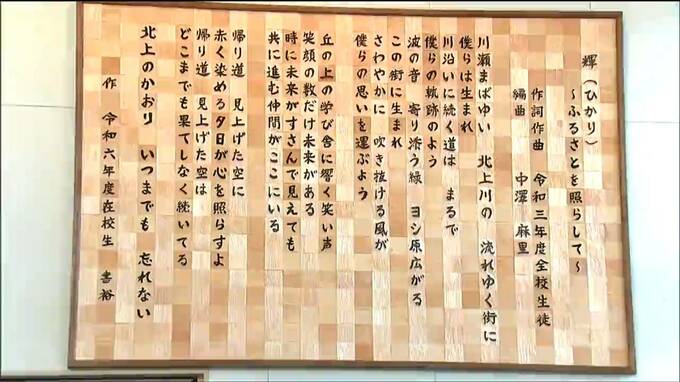 輝(ひかり)
～ふるさとを照らして～
作詞作曲 令和三年度全校生徒
編曲 中澤 麻里
川瀬まばゆい 北上川の 流れゆく街に
僕らは生まれ
川沿いに続く道は まるで
僕らの軌跡のよう
波の音 寄り添う緑 ヨシ原広がる
この街に生まれ
さわやかに 吹き抜ける風が
僕らの思いを運ぶよう
丘の上の学び舎に響く笑い声
笑顔の数だけ未来がある
時に未来がすさんで見えても
共に進む仲間がここにいる
帰り道 見上げた空に
赤く染める夕日が心を照らすよ
帰り道 見上げた空は
どこまでも果てしなく続いてる
北上のかおり いつまでも 忘れない
作 令和六年度在校生 書裕